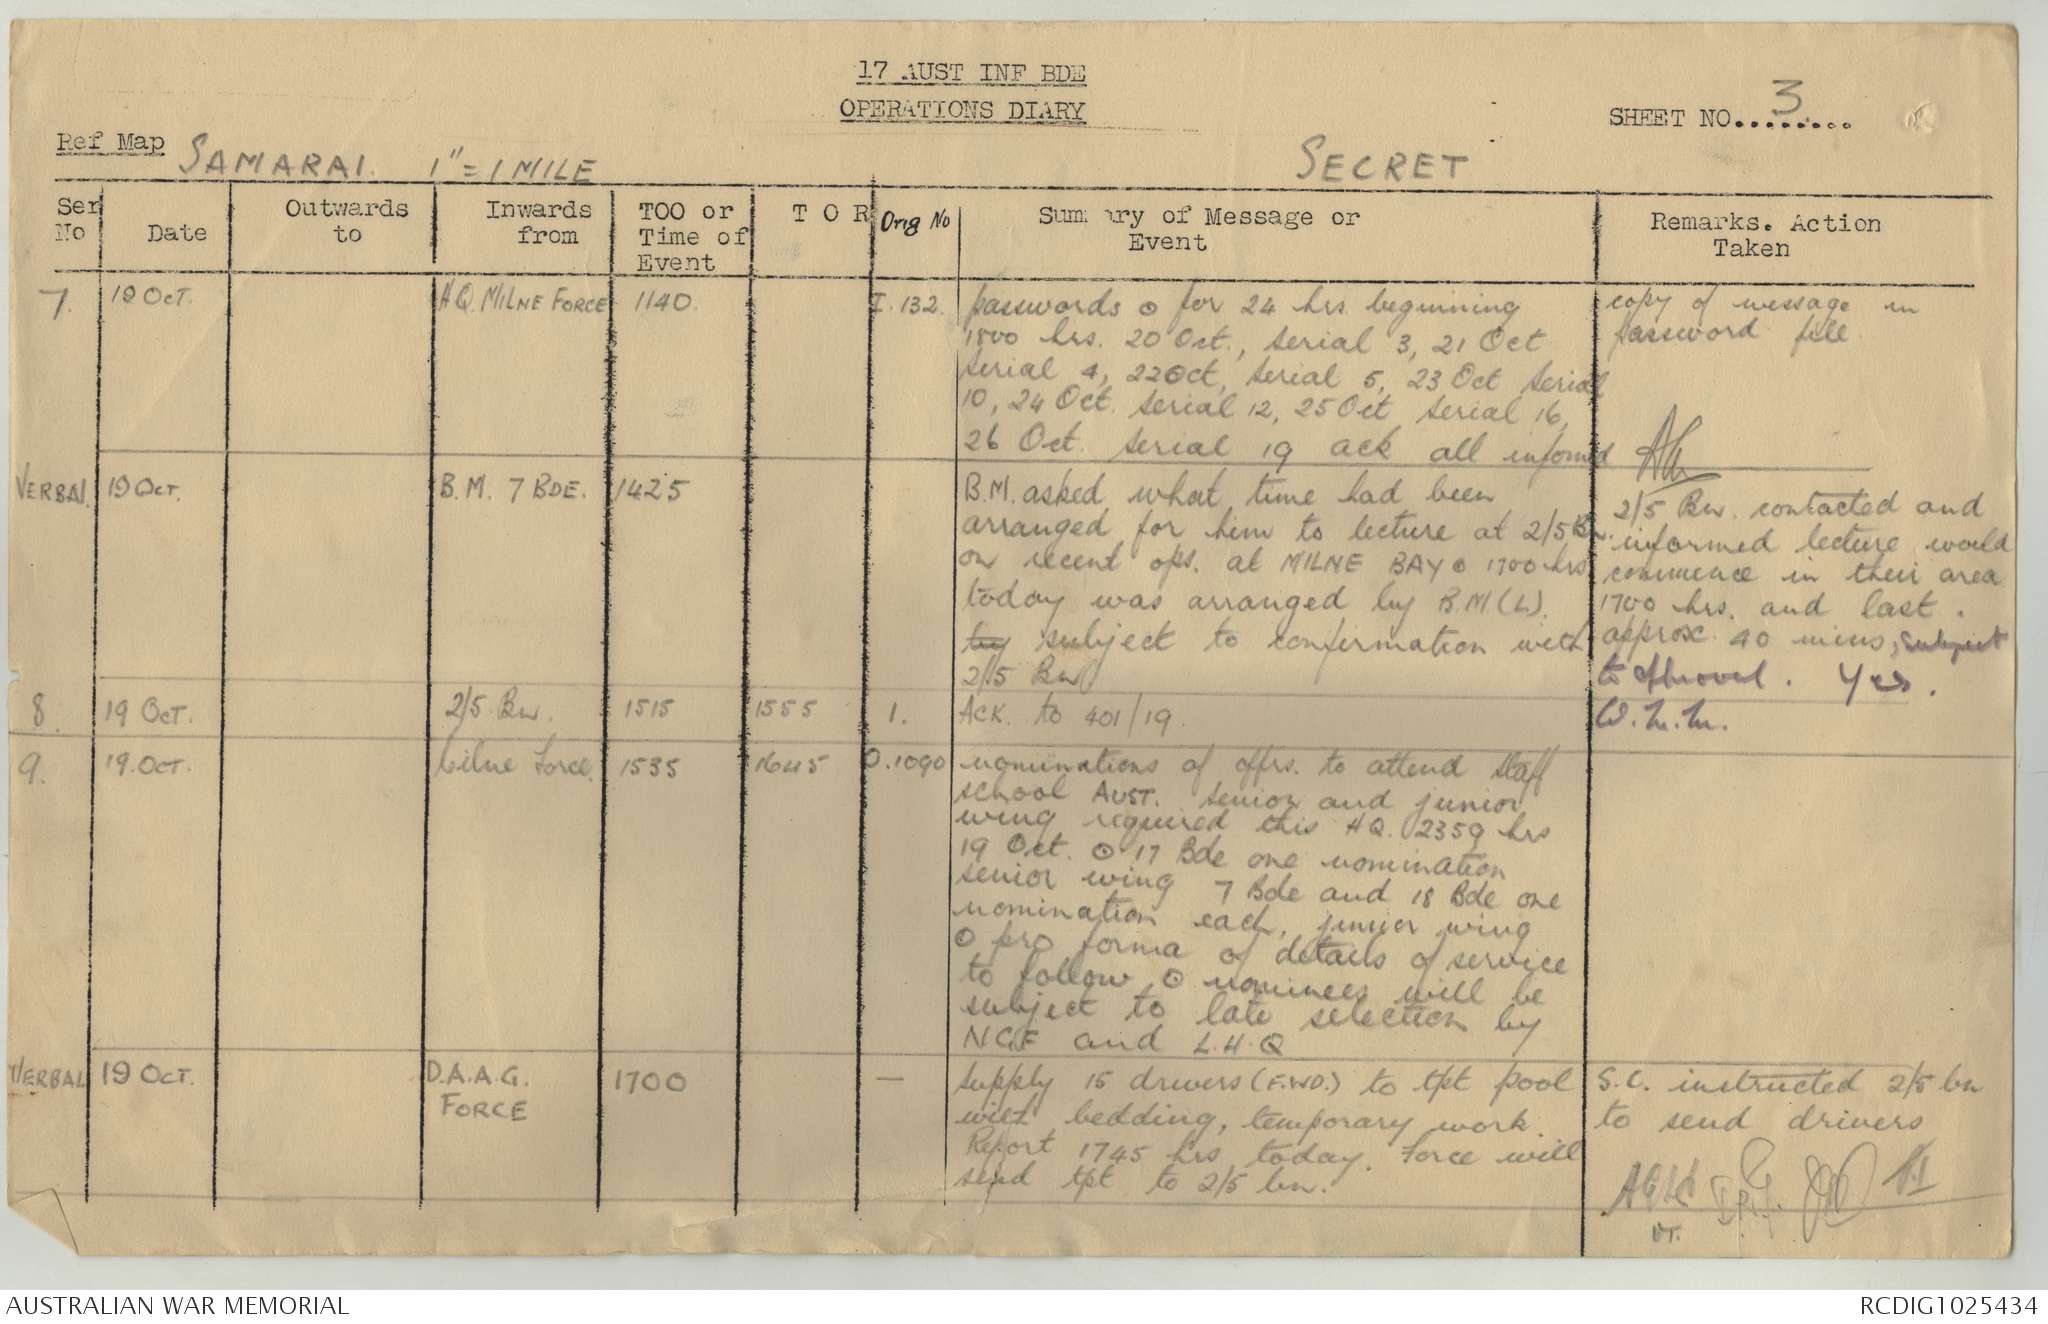 17 AUST INF BDE
OPERATIONS DIARY
SHEET NO........ 3
Ref Map SAMARAI. 1" = 1 MILE
SECRET
Ser No
Date
Outwards to
Inwards from
TOO or Time of Event
T O R
Orig No
Summary of Message or Event
Remarks. Action Taken
7. 19 Oct. HQ. MILNE FORCE 1140. I.132.
passwords ⊙ for 24 hrs. beginning
1800 hrs. 20 Oct., serial 3, 21 Oct
serial 4, 22 Oct, serial 5, 23 Oct serial
10, 24 Oct. serial 12, 25 Oct serial 16,
26 Oct. serial 19 ack all informed
copy of message in
password file.
VERBAL 19 Oct. B.M. 7 BDE. 1425
B.M. asked what time had been
arranged for him to lecture at 2/5 Bn.
on recent ops. at MILNE BAY ⊙ 1700 hrs
today was arranged by B.M (L).
by subject to confirmation with
2/5 Bn
2/5 Bn. contacted and
informed lecture would
commence in their area
1700 hrs. and last.
approx. 40 mins, subject
to approval. Yes.
W.M.M.
8. 19 Oct. 2/5 Bn. 1515 1555 1. ACK. to 401/19.
9. 19. Oct. Milne Force. 1535 1645 O.1090
nominations of offrs. to attend staff
school AUST. senior and junior
wing required this HQ. 2359 hrs
19 Oct. ⊙ 17 Bde one nomination
senior wing 7 Bde and 18 Bde one
nomination each, junior wing
⊙ pro forma of details of service
to follow ⊙ nominees will be
subject to late selection by
NGF and L.H.Q
VERBAL 19 Oct. D.A.A.G. FORCE 1700 —
Supply 15 drivers (F.W.D.) to tpt pool
with bedding, temporary work.
Report 1745 hrs today. Force will
send tpt to 2/5 bn.
S.C. instructed 2/5 bn
to send drivers
AUSTRALIAN WAR MEMORIAL
RCDIG1025434